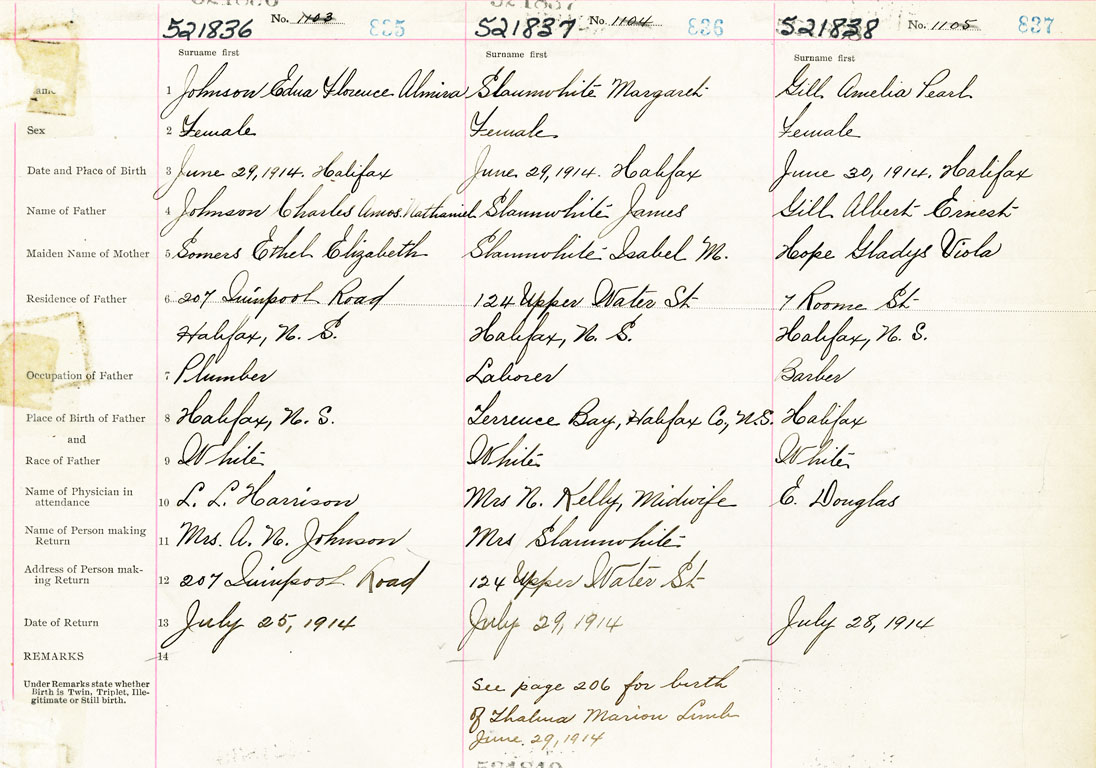 No. 1103 835 No. 1104 836 No. 1105 837
521836 521837 521838
Surname first Surname first Surname first
1 Johnson Edna Florence Almira Slaunwhite Margaret Gill Amelia Pearl
Sex 2 Female Female Female
Date and Place of Birth 3 June 29, 1914. Halifax June, 29, 1914. Halifax June 30, 1914. Halifax
Name of Father 4 Johnson Charles Amos. Nathaniel Slaunwhite James Gill Albert Ernest
Maiden Name of Mother 5 Somers Ethel Elizabeth Slaunwhite Isabel M. Hope Gladys Viola
Residence of Father 6 207 Quinpool Road 124 Upper Water St 7 Roome St
Halifax, N. S. Halifax, N. S. Halifax, N. S.
Occupation of Father 7 Plumber Laborer Barber
Place of Birth of Father 8 Halifax, N. S. Terrence Bay, Halifax Co, N.S. Halifax
and
Race of Father 9 White White White
Name of Physician in
attendance 10 L. L. Harrison Mrs N. Kelly, Midwife E. Douglas
Name of Person making
Return 11 Mrs. A. N. Johnson Mrs Slaunwhite
Address of Person mak-
ing Return 12 207 Quinpool Road 124 Upper Water St
Date of Return 13 July 25, 1914 July 29, 1914 July 28, 1914
REMARKS 14
Under Remarks state whether
Birth is Twin, Triplet, Ille-
gitimate or Still birth.
See page 206 for birth
of Marion
June. 29, 1914